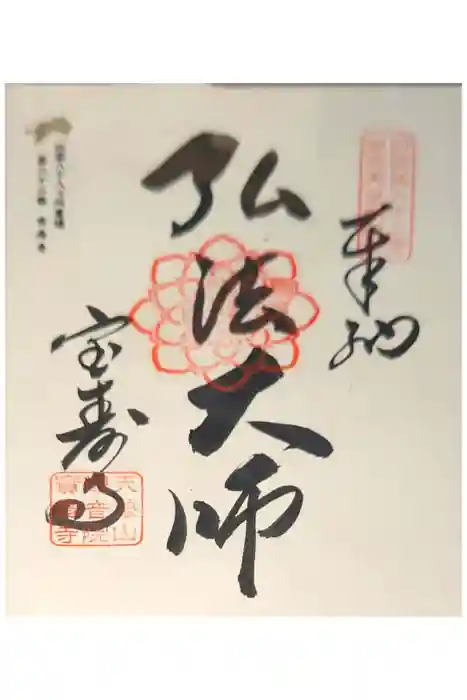 奉納
弘法大師
宝寿寺
四国八十八ヶ所霊場
第六十二番 宝寿寺
天養山
観音院
寳壽寺